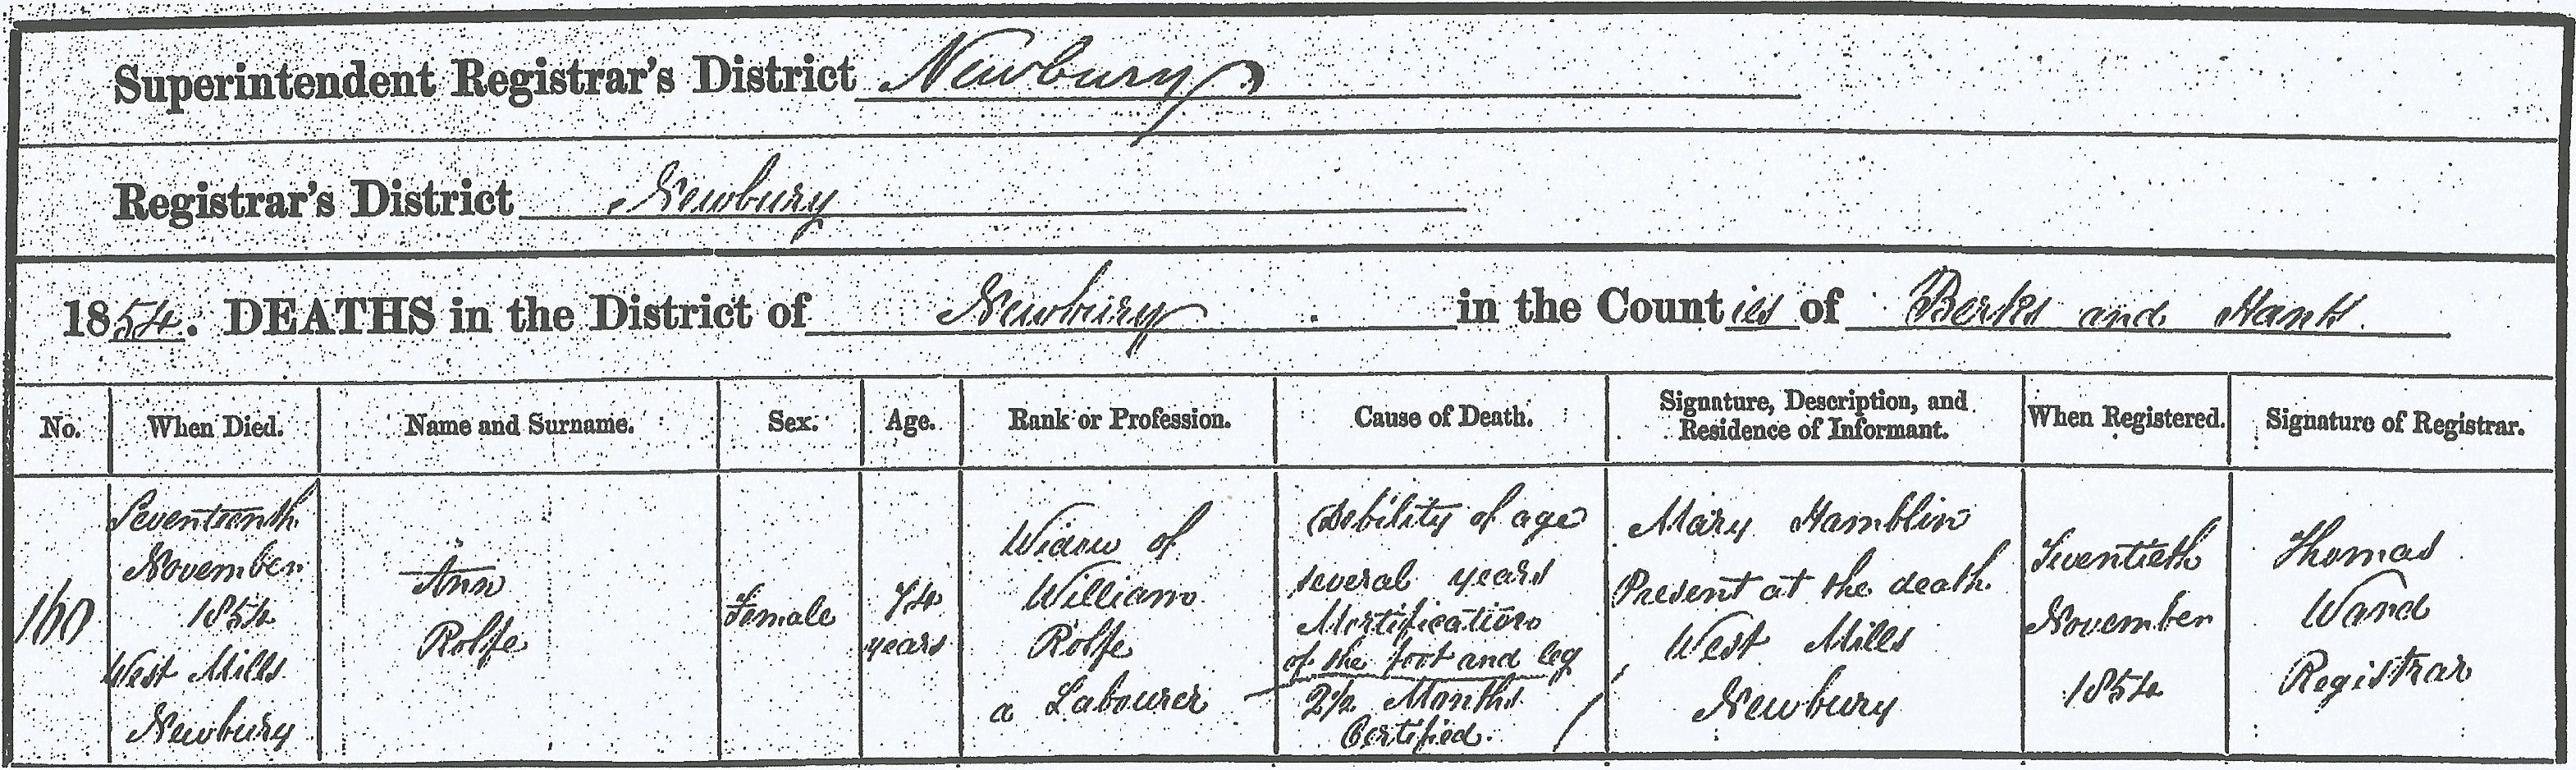 Superintendent Registrar's District Newbury
Registrar's District Newbury
1854. DEATHS in the District of Newbury in the Counties of Berks and Hants.
No.
When Died.
Name and Surname.
Sex.
Age.
Rank or Profession.
Cause of Death.
Signature, Description, and
Residence of Informant.
When Registered.
Signature of Registrar.
160
Seventeenth
November
1854
West Mills
Newbury
Ann
Rolfe
Female
74
years
Widow of
William
Rolfe
a Labourer
Debility of age
several years
Mortification
of the foot and leg
2½ Months
Certified.
Mary Hamblin
Present at the death
West Mills
Newbury
Twentieth
November
1854
Thomas
Ward
Registrar